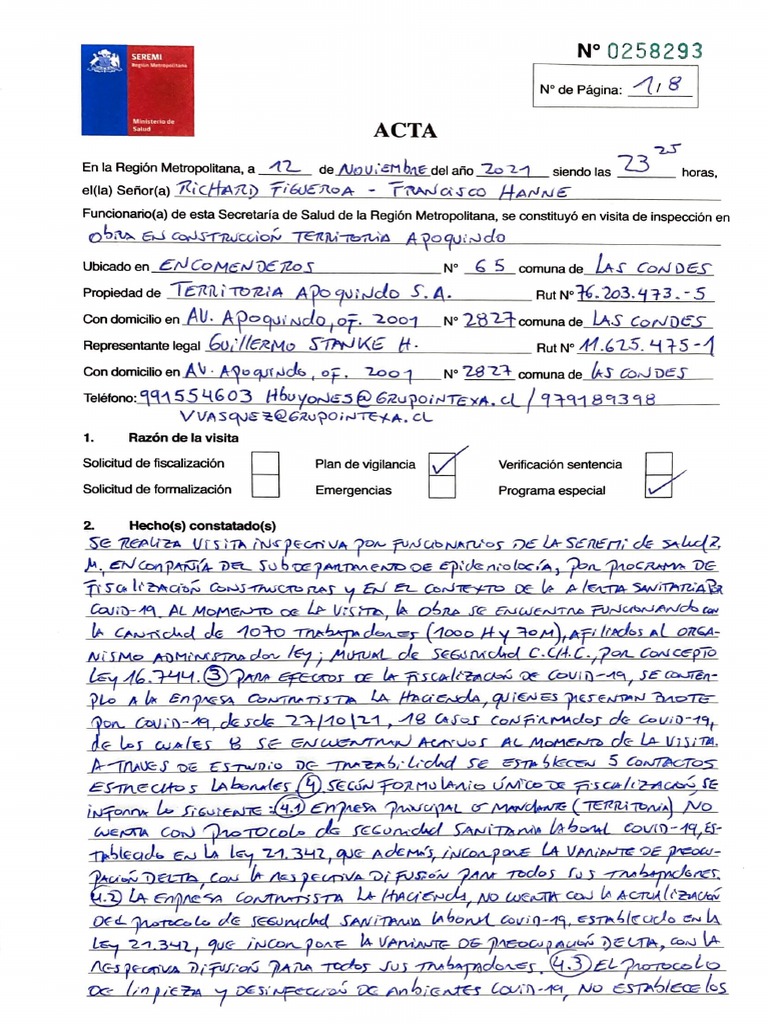 SEREMI
Región Metropolitana
Ministerio de
Salud
N° 0258293
N° de Página: 1/8
ACTA
En la Región Metropolitana, a 12 de NOVIEMBRE del año 2021 siendo las 23 25 horas,
el(la) Señor(a) RICHARD FIGUEROA - FRANCISCO HANNE
Funcionario(a) de esta Secretaría de Salud de la Región Metropolitana, se constituyó en visita de inspección en
OBRA EN CONSTRUCCIÓN TERRITORIA APOQUINDO
Ubicado en ENCOMENDEROS N° 65 comuna de LAS CONDES
Propiedad de TERRITORIA APOQUINDO S.A. Rut N° 76.203.473.-5
Con domicilio en AV. APOQUINDO, OF. 2001 N° 2827 comuna de LAS CONDES
Representante legal GUILLERMO STANKE H. Rut N° 11.625.475-1
Con domicilio en AV. APOQUINDO, OF. 2001 N° 2827 comuna de LAS CONDES
Teléfono: 991554603 HBUYONES@GRUPOINTEXA.CL / 979189398
VVASQUEZ@GRUPOINTEXA.CL
1. Razón de la visita
Solicitud de fiscalización Plan de vigilancia ✓ Verificación sentencia
Solicitud de formalización Emergencias Programa especial ✓
2. Hecho(s) constatado(s)
SE REALIZA VISITA INSPECTIVA POR FUNCIONARIOS DE LA SEREMI DE SALUD R.
M. EN COMPAÑÍA DEL SUBDEPARTAMENTO DE EPIDEMIOLOGÍA, POR PROGRAMA DE
FISCALIZACIÓN CONSTRUCTORAS Y EN EL CONTEXTO DE LA ALERTA SANITARIA POR
COVID-19. AL MOMENTO DE LA VISITA, LA OBRA SE ENCUENTRA FUNCIONANDO CON
LA CANTIDAD DE 1070 TRABAJADORES (1000 H Y 70 M), AFILIADOS AL ORGA-
NISMO ADMINISTRADOR LEY; MUTUAL DE SEGURIDAD C.CH.C., POR CONCEPTO
LEY 16.744. 3 PARA EFECTOS DE LA FISCALIZACIÓN DE COVID-19, SE CONTEM-
PLO A LA EMPRESA CONTRATISTA LA HACIENDA, QUIENES PRESENTAN BROTE
POR COVID-19, DESDE 27/10/21, 18 CASOS CONFIRMADOS DE COVID-19,
DE LOS CUALES 8 SE ENCUENTRAN ACTIVOS AL MOMENTO DE LA VISITA.
A TRAVES DE ESTUDIO DE TRAZABILIDAD SE ESTABLECEN 5 CONTACTOS
ESTRECHOS LABORALES. 4 SEGÚN FORMULARIO ÚNICO DE FISCALIZACIÓN SE
INFORMA LO SIGUIENTE: 4.1 EMPRESA PRINCIPAL O MANDANTE (TERRITORIA) NO
CUENTA CON PROTOCOLO DE SEGURIDAD SANITARIA LABORAL COVID-19, ES-
TABLECIDO EN LA LEY 21.342, QUE ADEMÁS, INCORPORE LA VARIANTE DE PREOCU-
PACIÓN DELTA, CON LA RESPECTIVA DIFUSIÓN PARA TODOS SUS TRABAJADORES.
4.2 LA EMPRESA CONTRATISTA LA HACIENDA, NO CUENTA CON LA ACTUALIZACIÓN
DEL PROTOCOLO DE SEGURIDAD SANITARIA LABORAL COVID-19, ESTABLECIDO EN LA
LEY 21.342, QUE INCORPORE LA VARIANTE DE PREOCUPACIÓN DELTA, CON LA
RESPECTIVA DIFUSIÓN PARA TODOS SUS TRABAJADORES. 4.3 EL PROTOCOLO
DE LIMPIEZA Y DESINFECCIÓN DE AMBIENTES COVID-19, NO ESTABLECE LOS